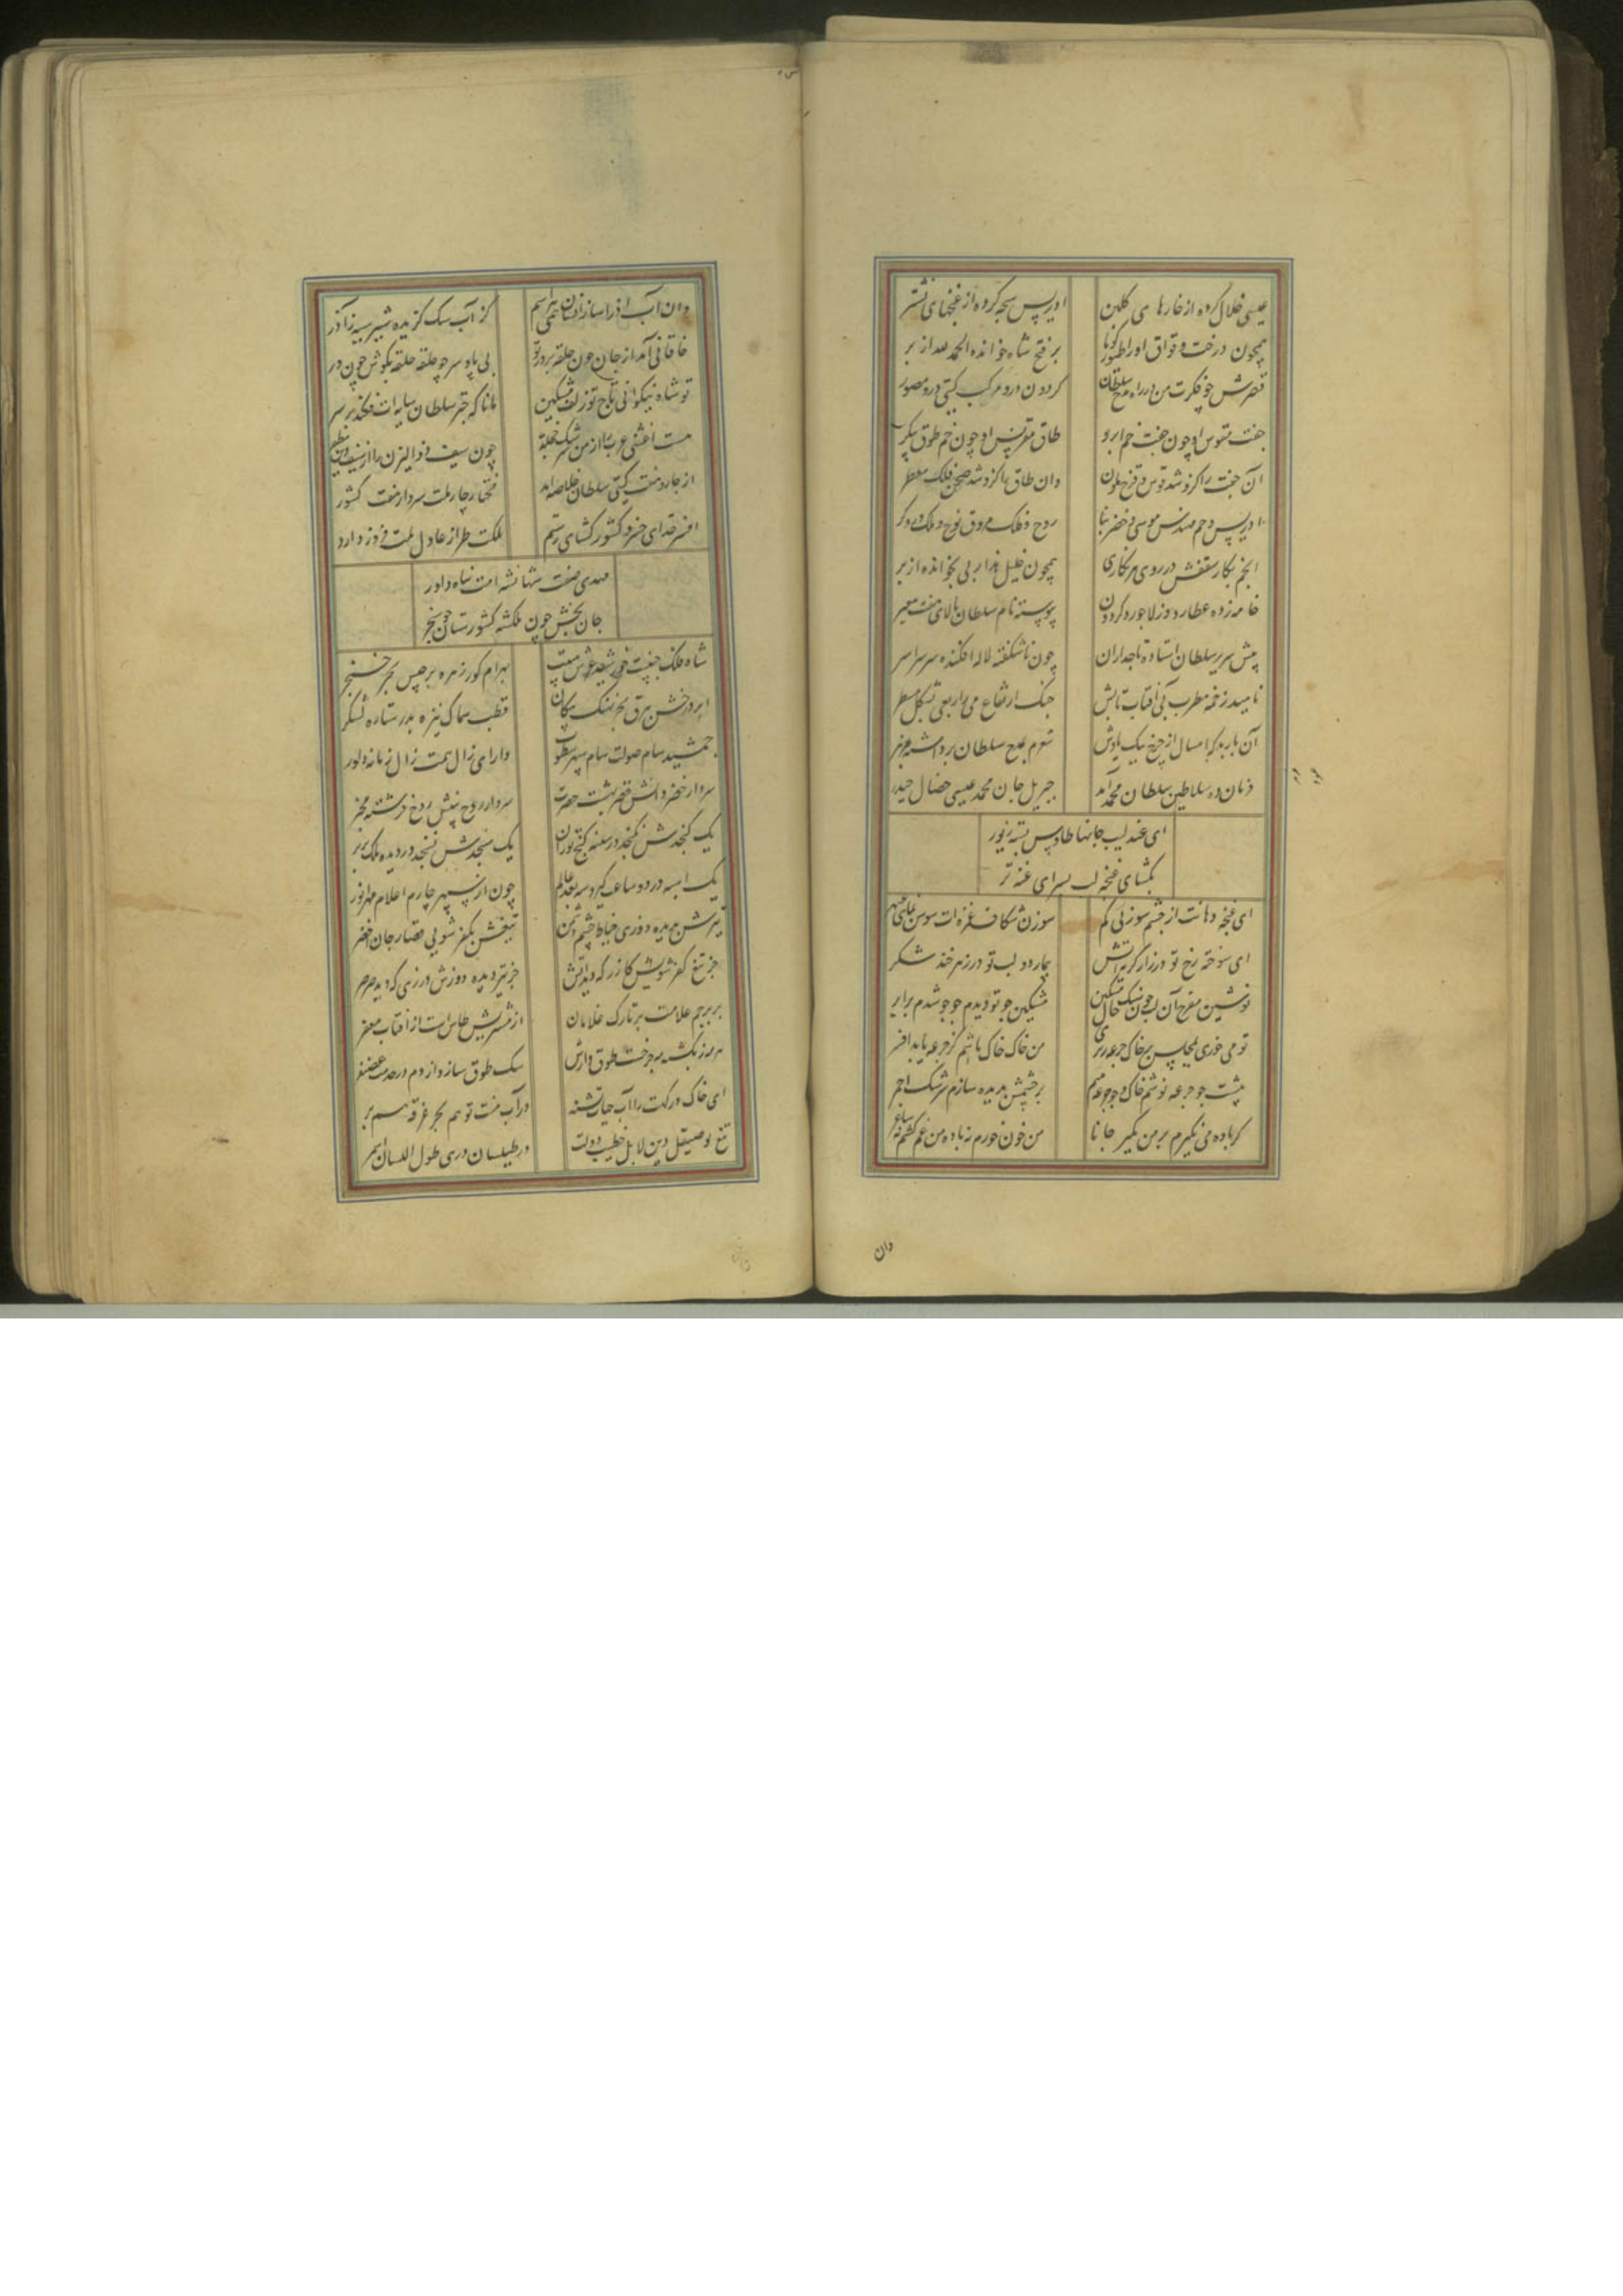 عیسی خلال کرده از خارهای گلبن ادریس سبحه کرده از غنچهای نشتر
همچون درخت وقواق او را طیور گویا بر فتح شاه خوانده الحمد لله از بر
قصرش چو فکرت من در راه مدح سلطان گردون درو مرکب گیتی درو مصور
جفت مقوس او چون جفت خم ابرو طاق مقرنس او چون خم طوق پیکر
آن جفت را کزو شد قوس قزح ملون وان طاق را کزو شد صحن فلک معطر
ادریس و جم مهندس موسی و خضر بنا روح و فلک مزوق نوح و ملک دروگر
انجم نگار سقفش در روی هر نگاری همچون خلیل هذا ربی بخوانده از بر
خامه زده عطارد در لاجورد گردون پیوسته نام سلطان بالای هفت معبر
پیش سریر سلطان استاده تاجداران چون ناشکفته لاله افکنده سر سراسر
ناهید زخمه مطرب کف آفتاب تابش چنگ ارتفاع می را ربعی بشکل مسطر
آن باربد که امسال از چرخ نیک یادش شعرم بمدح سلطان برداشته
در شان ده سلاطین سلطان محمد آمد جبریل جان محمد عیسی خصال حیدر
ای عندلیب جانها طاوس بسته زیور
بگشای غنچه لب بسرای غنه تر
ای غنچه دهانت از چشم سوزنی کم سوزن شکاف غمزه‌ات سوسن نمای عبهر
ای سوخته رخ تو در زار گریه آتش بیمار دو لب تو در زهر خند شکر
نوشین مفرح آن لب چون نیست خال مشکین مشکین جو تو دیدم جو جو شدم برابر
تو می خوری بمجلس بر خاک جرعه ریزی من خاک خاک باشم کز جرعه یابد افسر
پیشت چو جرعه نوشم خاک و چو جرعه هم بر چشمش بدیده سازم سرشک احمر
گر باده می نگیرم بر من مگیر جانا من خون خورم نه باده من غم کشم نه ساغر
دان
وان آب آذر آسا زان سان همی هراسم کز آب سگ گزیده شیر سیه ز آذر
خاقانی آمد از جان چون حلقه بر در تو بی پا و سر چو حلقه حلقه بگوش چون در
تو شاه نیکوانی تاج تو زلف مشکین مانا که چتر سلطان سایه‌ات فکند بر سر
هست اعشی عرب را از من سرشک خجلت چون سیف ذو الیزن را از سیف دین مظفر
از چار و هفت گیتی سلطان خلاصه آمد مختار چار ملت سردار هفت کشور
افسر خدای خسرو کشور کشای رستم ملکت طراز عادل ملت فروز داور
مهدی صفت شهنشه امت پناه داور
جان بخش چون ملکشه کشورستان چو سنجر
شاه فلک جنیبت خورشید عرش هیبت بهرام گور زهره برجیس بحر خنجر
ابر درخش بیرق بحر نهنگ پیکان قطب سماک نیزه بدر ستاره لشکر
جمشید سام صولت سام سپهر سطوت دارای زال همت زال زمانه داور
سردار خضر دانش خضر بهشت حضرت سردار روح بینش روح فرشته مخبر
یک گنجدش نگنجد در سینه گنج توران یک سنجدش نسنجد در دیده ملک بربر
یک اسبه در دو ساعت گیرد سه بعد عالم چون از سپهر چارم اعلام مهر انور
تیرش بدیده دوزی خیاط چشم دشمن تیغش بکفر شویی قصار جان اخضر
جز تیغ کفر شویش گازر که دید آتش جز تیر دیده دوزش درزی که دید صرصر
بر پرچم علامت بر تارک غلامان از مشتریش طاس است از آفتاب مغفر
هر روز یکشبه به چرخت طوق دارش سگ طوق سازد از دم در خدمت غضنفر
ای خاک درگهت را آب حیات تشنه در آب منت تو هم بحر غرقه هم بر
تیغ تو صیقل دین لا بل خطیب دولت در طیلسان دری طول اللسان اسمر